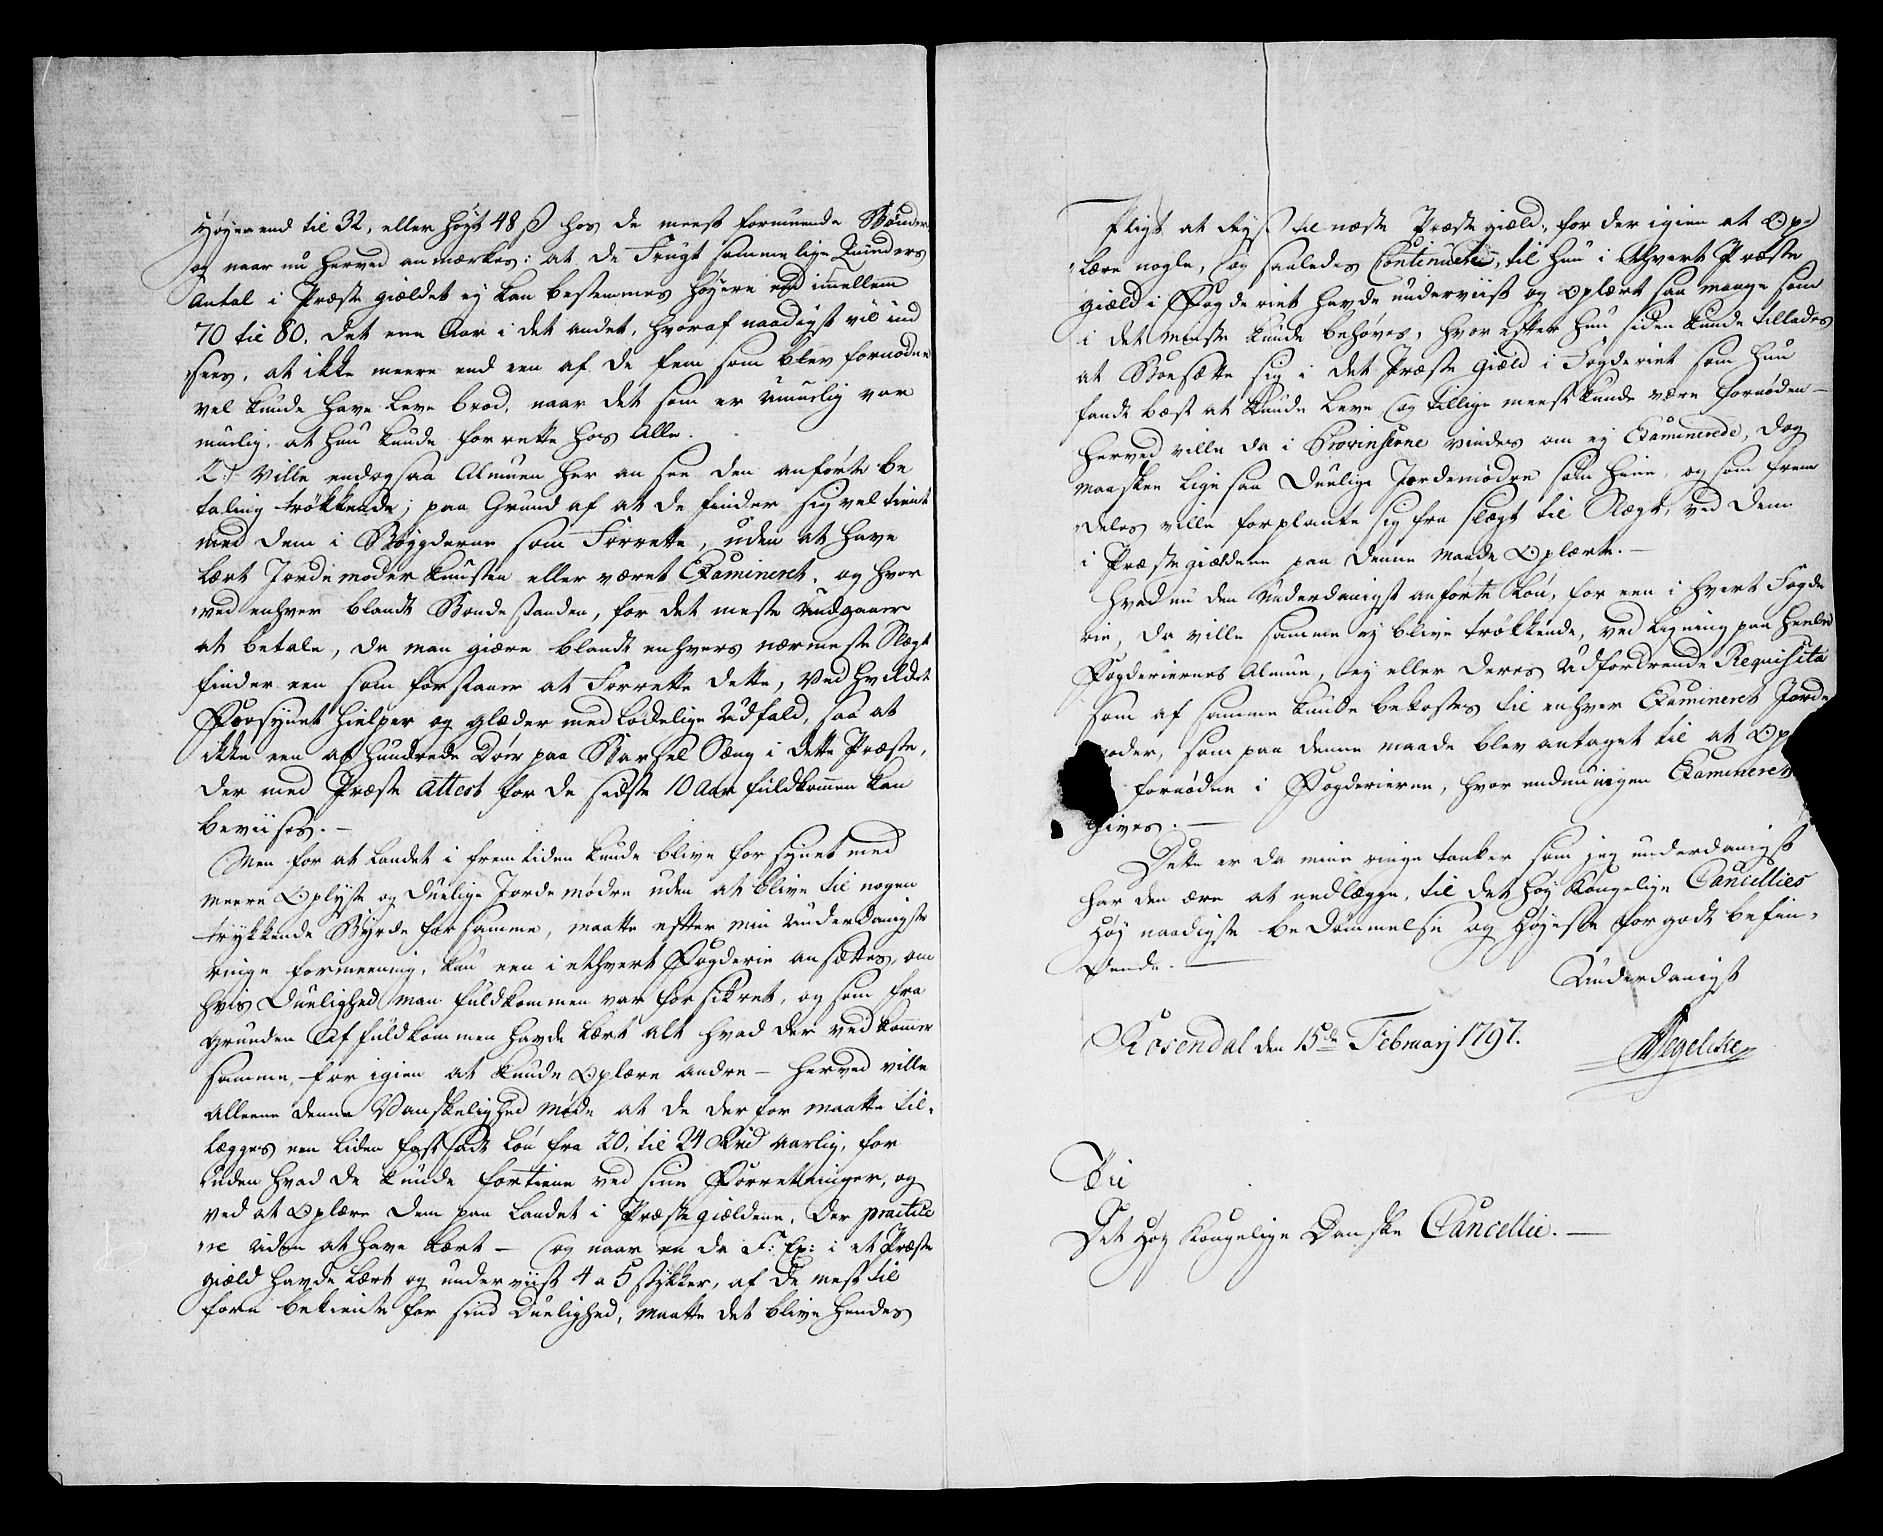 Høyere end til 32, eller høyt 48 ß hos de meest formuende Bønder
og naar nu herved anmærkes: at de Frugtsommelige Qvinders
Antal i Præstegieldet ey kan bestemmes høyere end imellem
70 til 80. det ene Aar i det andet, hvoraf naadigst vil ind
sees, at ikke meere end een af de fem som blev fornødne
vel kunde have Leve brød, naar det som er umuelig var
muelig, at hun kunde forrette hos Alle.
2.) Ville endogsaa Almuen her ansee den anførte be
taling trøkkende; paa Grund af at de finder sig vel tient
med dem i Bøygderne som Forrette, uden at have
lært Jordemoder kunsten eller været Examineret, og hvor
ved enhver blandt Bondestanden, for det meste undgaaer
at betale, da man giærne blandt enhvers nærmeste Slægt
finder een som forstaaer at Forrette dette, ved hvilket
Forsynet hielper og glæder med lodelige Udfald, saa at
ikke een af hundrede Døer paa Barsel Sæng i dette Præste,
der med Præste Attest for de sidste 10 Aar fuldkommen kan
beviises. —
Men for at Landet i fremtiden kunde blive forsynet med
meere Oplyste og duelige Jordemødre uden at blive til nogen
trykkende Byrde for samme, maatte efter min underdanigste
ringe formeening, kun een i ethvert Fogderie ansættes, om
hvis Duelighed man fuldkommen var forsikret, og som fra
grunden af fuldkommen havde lært alt hvad der vedkommer
samme, for igien at kunde Oplære andre — herved ville
alleene denne Vanskelighed møde at de derfor maatte til,
lægges een liden fastsadt Løn fra 20, til 24 Rdr aarlig, for
uden hvad de kunde fortiene ved sine Forretninger, og
ved at Oplære dem paa Landet i Præstegieldene, der practice
re uden at have lært — og naar en da F: Ex: i et Præste
gield havde lært og underviist 4 a 5 stykker, af de mest til
forn bekiendte for sind Duelighed, maatte det blive hendes
Pligt at reyse til næste Præstegield, for der igien at Op
lære nogle, og saaledes Continuere, til hun i Ethvert Præste
gield i Fogderiet havde underviist og oplært saa mange som
i det mindste kunde behøves, hvorefter hun siden kunde tillades
at Boesætte sig i det Præste Gield i Fogderiet som hun
fandt best at kunde Leve og tillige meest kunde være fornøden —
herved ville da i Provinserne vindes om ey Examinerede, dog
maaskee ligesaa duelige Jordemødre som hine, og som frem
deles ville forplante sig fra slægt til Slægt, ved dem
i Præstegieldene paa denne maade Oplærte. —
Hvad nu den underdanigst anførte Løn, for een i hvert Fogde
rie, da ville samme ey blive trøkkende, ved Ligning paa heele
Fogderiernes Almue, ey eller deres udfordrende Requisita
som af samme kunde bekostes til enhver Examineret Jorde
moder, som paa denne maade blev antaget til at Op
fornøden i Fogderierne, hvor endnu ingen Examineret
gives. —
Dette er da mine ringe tanker som jeg underdanigst
har den ære at nedlægge, til det høy Kongelige Cancellies
Høy naadigste bedømmelse og Høyeste forgodt befin,
dende. —
Underdanigst
Rosendal den 15de Februarj 1797.
Til
Det Høy Kongelige Danske Cancellie. —